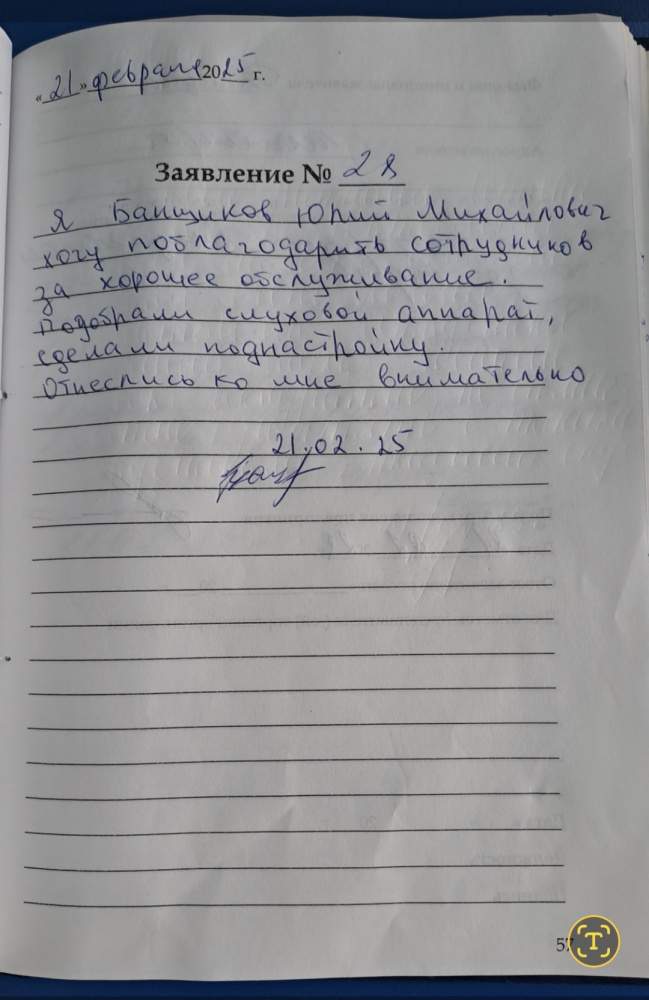 «21» февраля 2025 г.
Заявление № 28
Я Банщиков Юрий Михайлович
хочу поблагодарить сотрудников
за хорошее обслуживание.
Подобрали слуховой аппарат,
сделали поднастройку.
Отнеслись ко мне внимательно
21.02.25
57